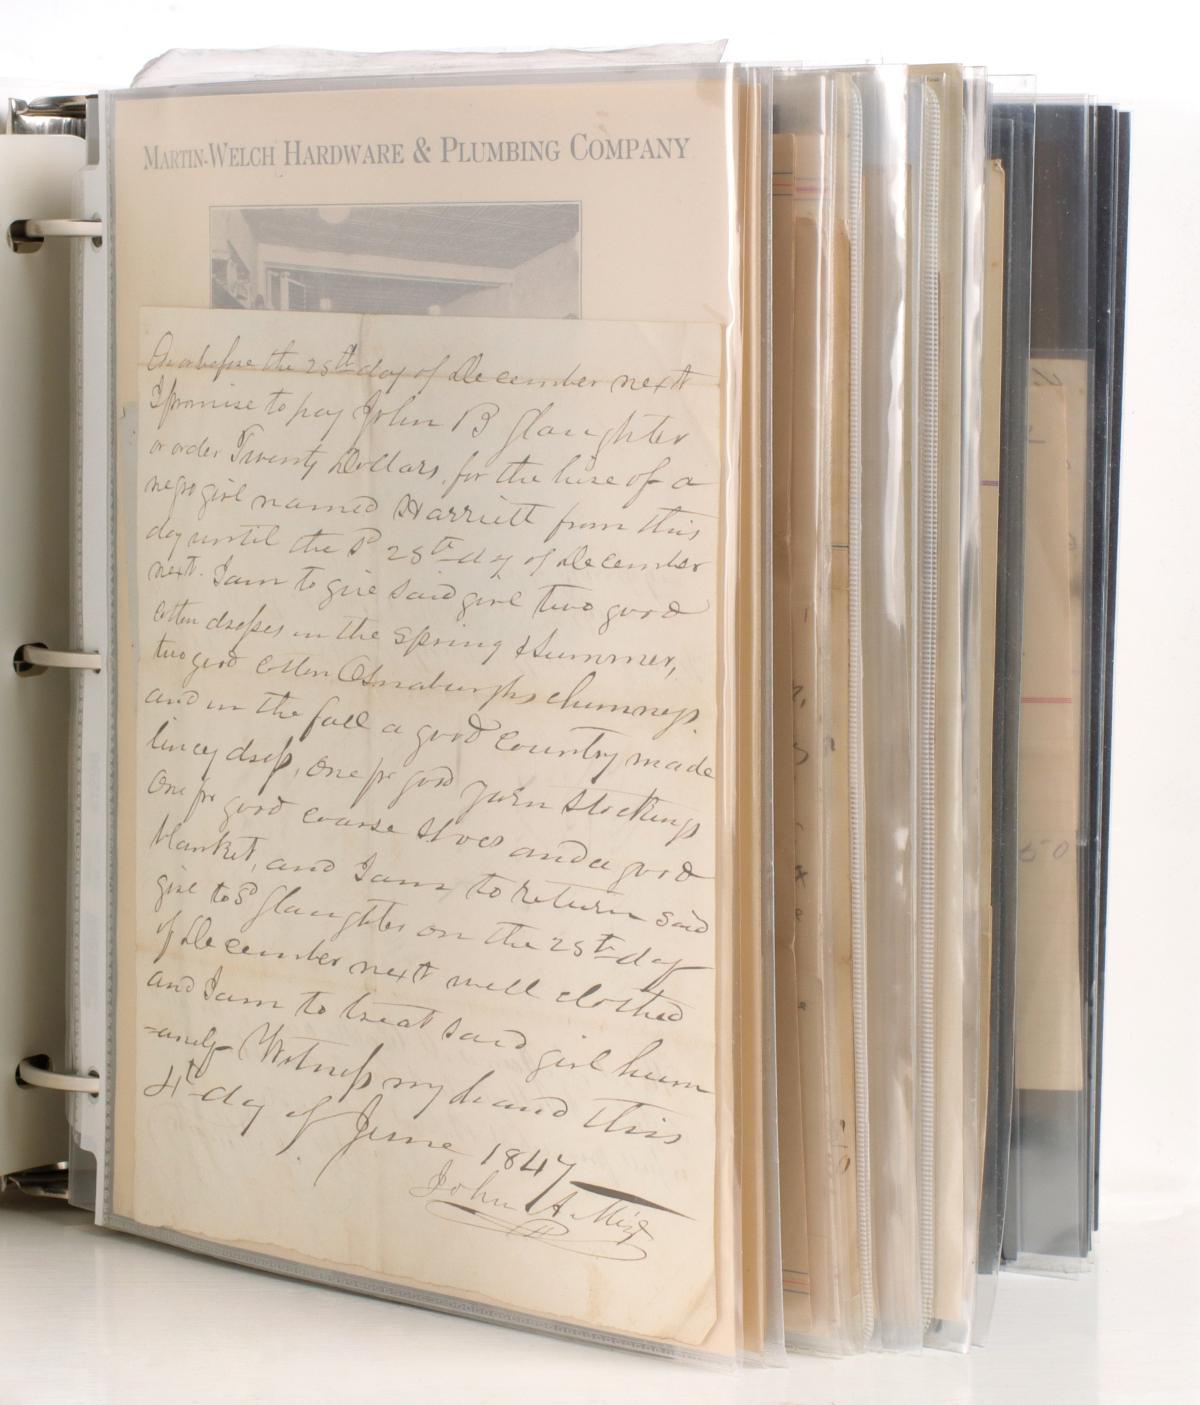 MARTIN-WELCH HARDWARE & PLUMBING COMPANY
On or before the 25th day of December next
I promise to pay John B Slaughter
or order Twenty Dollars, for the hire of a
negro girl named Harriett from this
day until the sd 25th day of December
next. I am to give said girl two good
cotton dresses in the Spring & Summer,
two good cotton Osnaburghs chimneys
and in the fall a good country made
lincey dress, one pr good yarn stockings
one pr good coarse shoes and a good
blanket, and I am to return said
girl to Sd Slaughter on the 25th day
of December next well clothed
and I am to treat said girl hum
=anely Witness my hand this
4th day of June 1847
John A.
50